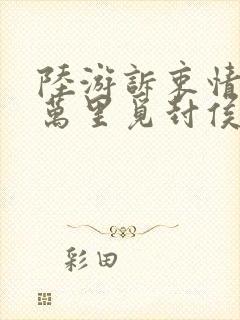 陸游訴衷情
萬里覓封侯
彩田